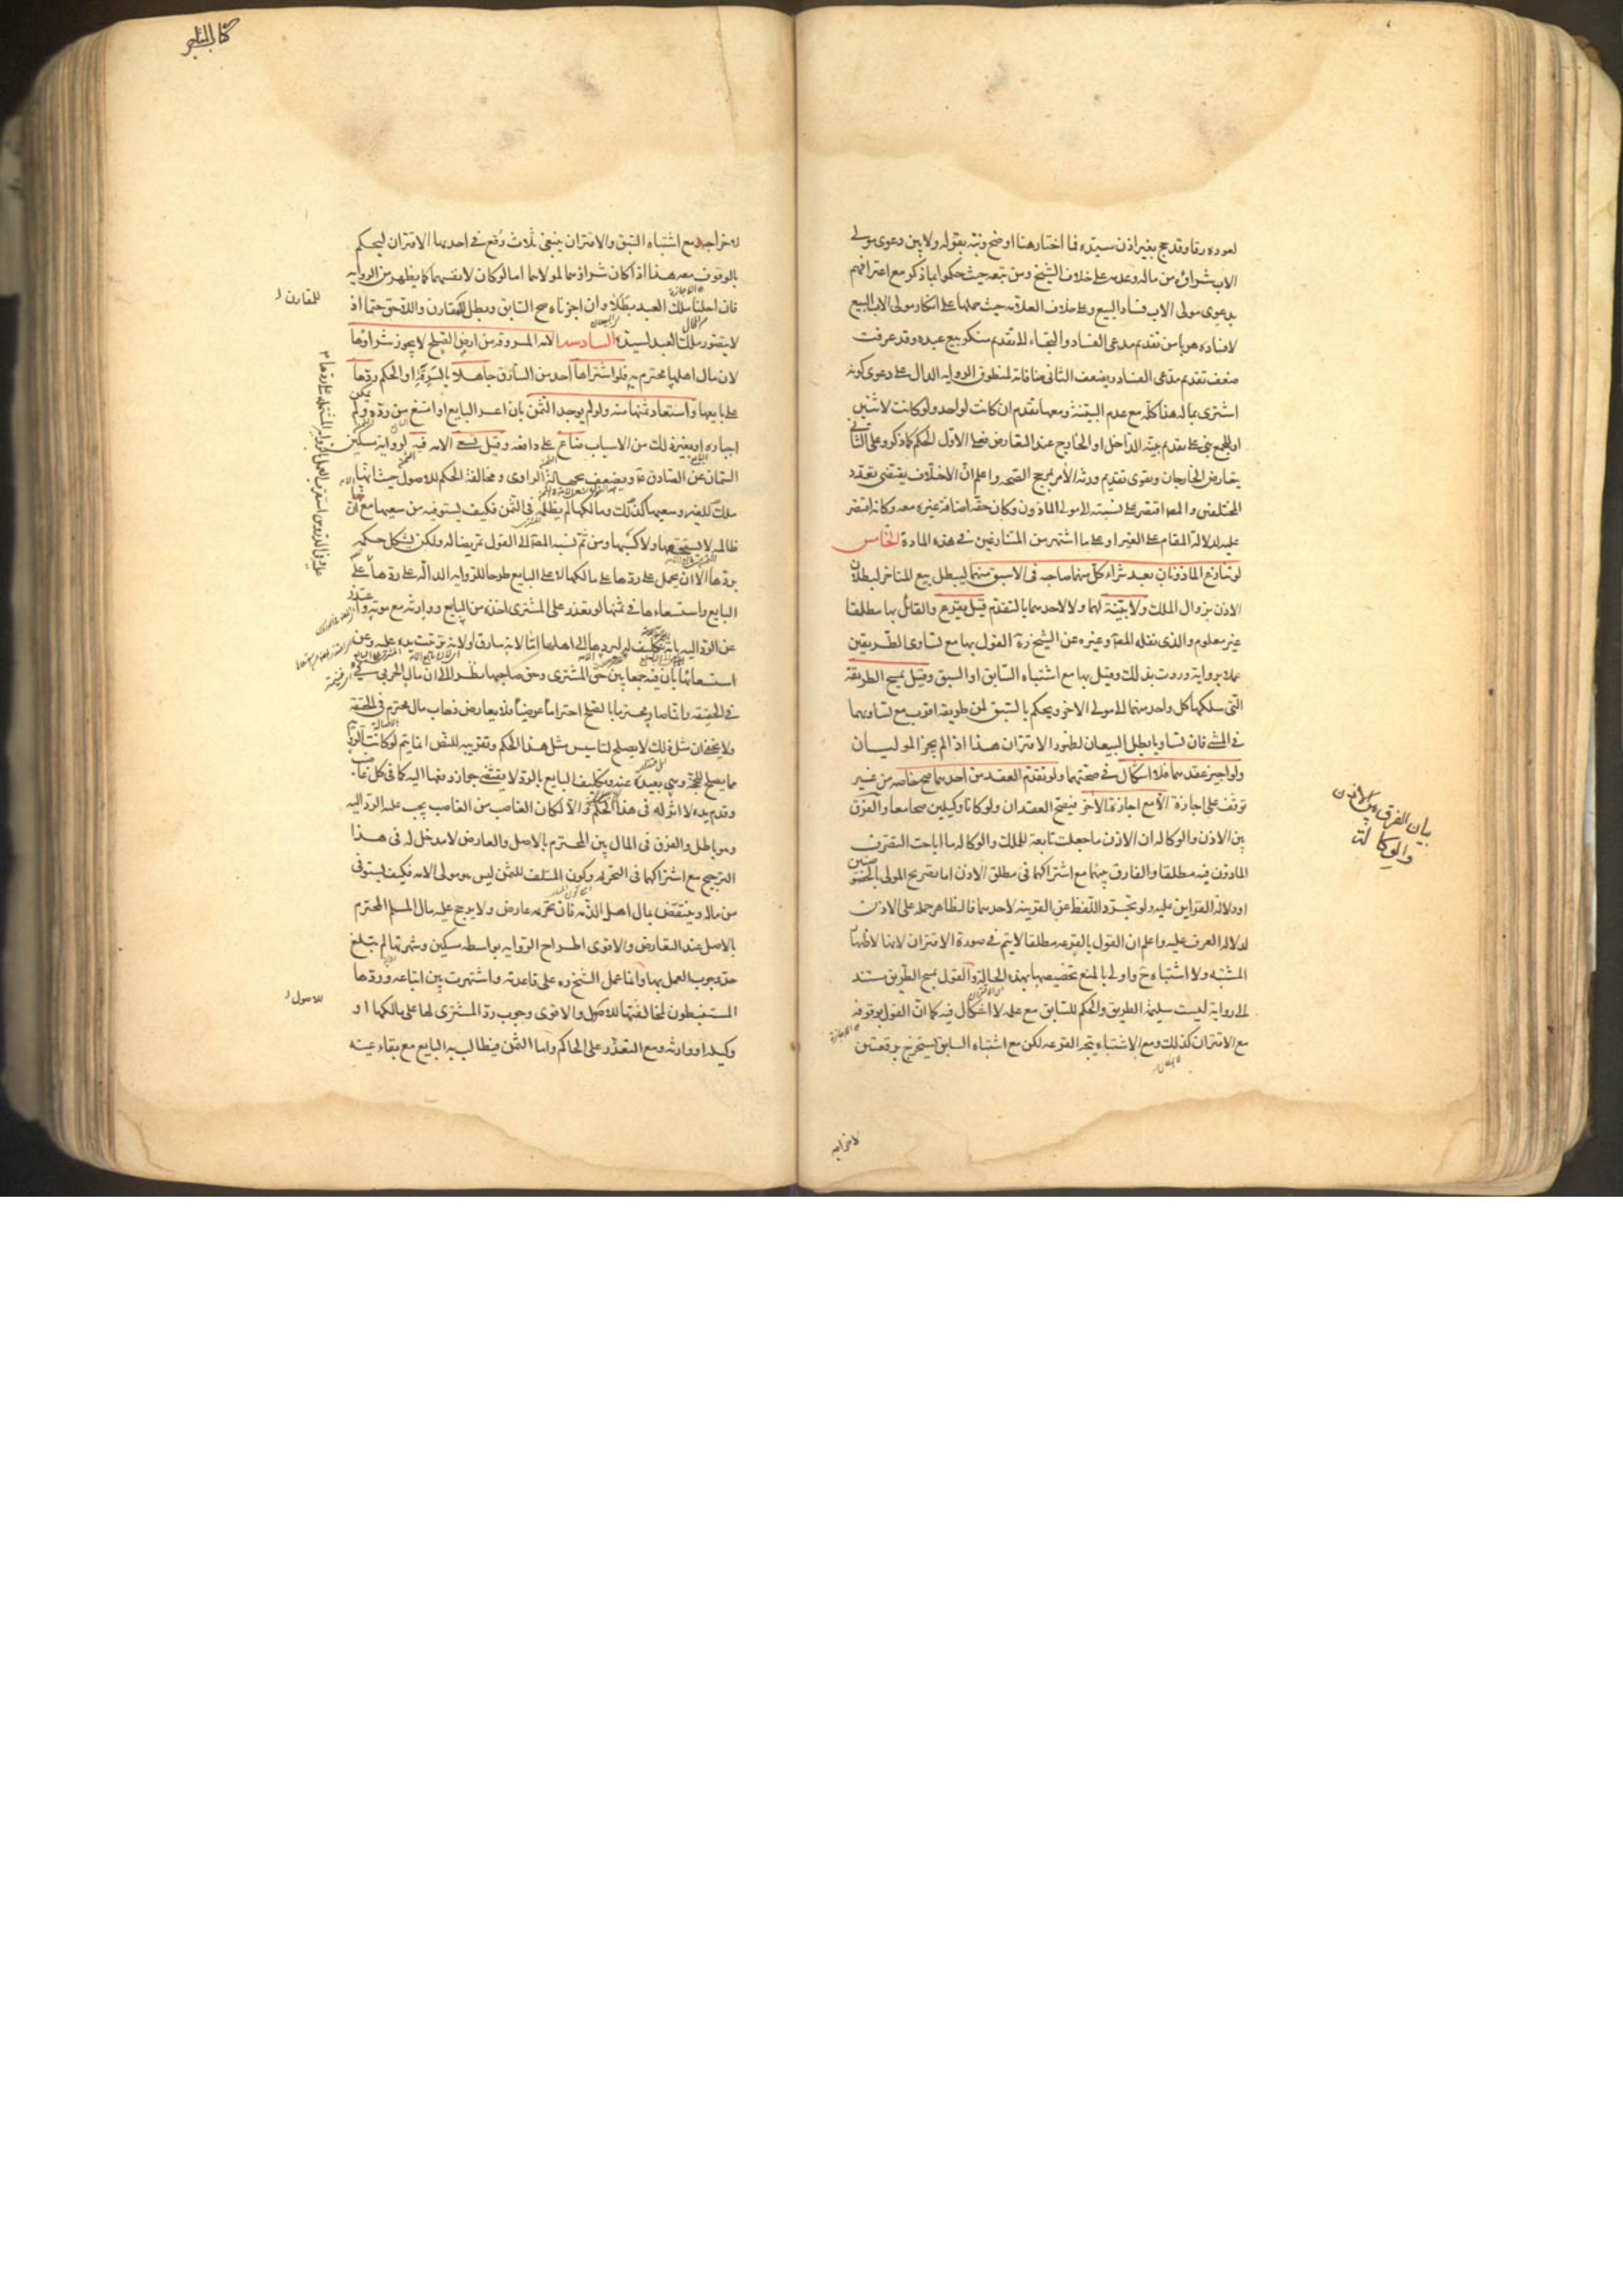 لعوده رقا وقد حج بغير اذن سيده فما اختاره هنا اوضح ونبّه بقوله ولا بين دعوى مولى
الاب شراؤه من ماله وعدمه على خلاف الشيخ ومن تبعه حيث حكموا بما ذكر مع اعترافهم
بدعوى مولى الاب فساد البيع وعلى خلاف العلامة حيث حملها على انكار مولى الاب البيع
لا فساده هربا من تقديم مدعى الفساد والتجاء الى تقديم منكر بيع عبده وقد عرفت
ضعف تقديم مدعى الفساد ويضعف الثانى منافاته لمنطوق الرواية الدال على دعوى كونه
اشترى بماله هذا كله مع عدم البينة ومعها تقدم ان كانت لواحد ولو كانت لاثنين
او للجميع بنى على تقديم بينة الداخل او الخارج عند التعارض فعلى الاول الحكم كما ذكر وعلى الثانى
يتعارض الخارجان ويقوى تقديم ورثة الآمر بمرجح الصحة واعلم ان الاختلاف يقتضى تعدد
المختلفين والمصـ اقتصر على نسبته الى مولى الماذون وكان حقه اضافة غيره معه وكانه اقتصر
عليه لدلالة المقام على الغير او على ما اشتهر من المتنازعين فى هذه المادة الخامس
لو تنازع الماذونان بعد شراء كل منهما صاحبه فى الاسبق منهما ليبطل بيع المتاخر لبطلان
الاذن بزوال الملك ولا بينة لهما ولا لاحدهما بالتقدم قيل يقرع والقائل بها مطلقا
غير معلوم والذى نقله المصـ وغيره عن الشيخ ره القول بها مع تساوى الطريقين
عملا برواية وردت بذلك وقيل بها مع اشتباه السابق او السبق وقيل يمسح الطريقة
التى سلكها كل واحد منهما الى مولى الاخر ويحكم بالسبق لمن طريقه اقرب مع تساويهما
فى المشى فان تساويا بطل البيعان لظهور الاقتران هذا اذا لم يجز الموليان
ولو اجيز عقدهما فلا اشكال فى صحتهما ولو تقدم العقد من احدهما صح خاصة من غير
توقف على اجازة الا مع اجازة الاخر فيصح العقدان ولو كانا وكيلين صحا معا والفرق
بين الاذن والوكالة ان الاذن ما جعلت تابعة للملك والوكالة ما اباحت التصرف
الماذون فيه مطلقا والفارق بينهما مع اشتراكهما فى مطلق الاذن اما تصريح المولى بالخصوصيتين
او دلالة القراين عليه ولو تجرد اللفظ عن القرينة لاحدهما فالظاهر حمله على الاذن
لدلالة العرف عليه واعلم ان القول بالقرعة مطلقا لا يتم فى صورة الاقتران لانها لاظهار
المشتبه ولا اشتباه ح واولى بالمنع تخصيصها بهذه الحالة والقول بمسح الطريق مستند
الى رواية ليست سليمة الطريق والحكم للسابق مع علمه لا اشكال فيه كما ان القول بوقوفه
مع الاقتران كذلك ومع الاشتباه تتجه القرعة لكن مع اشتباه السابق يستخرج برقعتين
بيان الفرق بين الاذن
والوكالة
كتاب المتاجر
لاخراجه مع اشتباه السبق والاقتران ينبغى ثلاث رقع فى احديها الاقتران ليحكم
بالوقوف معه هذا اذا كان شراؤهما لمولاهما اما لو كان لانفسهما كما يظهر من الرواية
فان احلنا ملك العبد بطلا وان اجزناه صح السابق وبطل المقارن واللاحق حتما اذ
للمقارن
لا يتصور ملك العبد لسيده السادسة الامة المسروقة من ارض الصلح لا يجوز شراؤها
لان مال اهلها محترم به فلو اشتراها احد من السارق جاهلا بالسرقة او الحكم ردها
على بايعها واستعاد ثمنها منه ولو لم يوجد الثمن بان اعسر البايع او امتنع من رده ولم يمكن
اجباره او بغير ذلك من الاسباب ضاع على دافعه وقيل تسعى الامة فيه لرواية مسكين
السمان عن الصادق ع ويضعف بجهالة الراوى ومخالفة الحكم للاصول حيث انها
ملك للغير وسعيها كذلك ومالكها لم يظلمه فى الثمن فكيف يستوفيه من سعيها مع ان
ظالمه لا يستحقها ولا كسبها ومن ثم نسبه المصـ الى القول تمريضا له ولكن يشكل حكمه
بردها الا ان يحمل على ردها على مالكها لا على البايع طرحا للرواية الدالة على ردها على
البايع واستسعاءها فى ثمنها لو تعذر على المشترى اخذه من البايع ووارثه مع موته واعتذر
عن الرد اليه بانه تكليف له ليردها الى اهلها اما لانه سارق او لانه ترتبت يده عليه وعن
استسعائها بان فيه جمعا بين حق المشترى وحق صاحبها نظرا الى ان مال الحربى فيئ
فى الحقيقة وانما صار محترما بالصلح احتراما عرضيا فلا يعارض ذهاب مال محترم فى الحقيقة
ولا يخفى ان مثل ذلك لا يصلح لتاسيس مثل هذا الحكم وتقريبه للنص انما يتم لو كانت الرواية
مما يصلح للحجة وهى بعيدة عنه وتكليف البايع بالرد لا يقتضى جواز دفعها اليه كما فى كل غاصب
وقدم يده لا اثر له فى هذا الحكم والا لكان الغاصب من الغاصب يجب عليه الرد اليه
وهو باطل والفرق فى المال بين المحترم بالاصل والعارض لا مدخل له فى هذا
الترجيح مع اشتراكهما فى التحريم وكون المتلف للثمن ليس هو مولى الامة فكيف يستوفى
من ماله وينتقض بمال اهل الذمة فان تحريمه عارض ولا يرجح عليه مال المسلم المحترم
بالاصل عند التعارض والاقوى اطراح الرواية بواسطة مسكين وشهرتها لم تبلغ
حد وجوب العمل بها وانما عمل الشيخ ره على قاعدته واشتهرت بين اتباعه وردها
المستنبطون لمخالفتها للاصول والاقوى وجوب رد المشترى لها على مالكها او
للاصول
وكيله او وارثه ومع التعذر على الحاكم واما الثمن فيطالب به البايع مع بقاء عينه